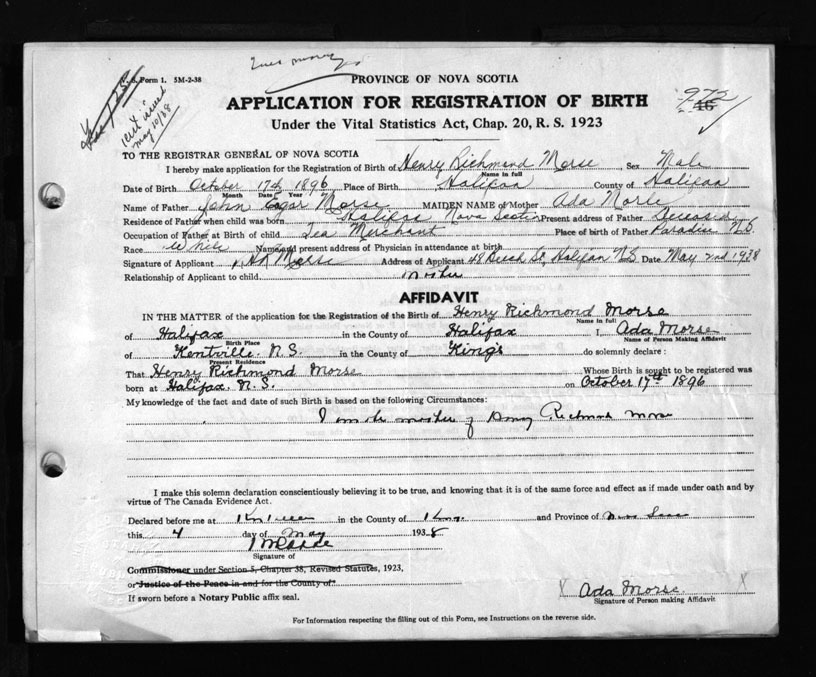 V. S. Form 1. 5M-2-38
PROVINCE OF NOVA SCOTIA
972
46
APPLICATION FOR REGISTRATION OF BIRTH
cert issued
May 10/38
Under the Vital Statistics Act, Chap. 20, R. S. 1923
TO THE REGISTRAR GENERAL OF NOVA SCOTIA
I hereby make application for Registration of Birth of Henry Richmond Morse Sex Male
Name in full
Date of Birth October 17th 1896 Place of Birth Halifax County of Halifax
Month Date Year
Name of Father John Edgar Morse MAIDEN NAME of Mother Ada Morse
Residence of Father when child was born Halifax Nova Scotia Present address of Father Deceased
Occupation of Father at Birth of child Tea Merchant Place of birth of Father Paradise N.S.
Race White Name and present address of Physician in attendance at birth
Signature of Applicant HR Morse Address of Applicant 48 Beech St, Halifax N.S. Date May 2nd 1938
Relationship of Applicant to child mother
AFFIDAVIT
IN THE MATTER of the application for the Registration of the Birth of Henry Richmond Morse
Name in full
of Halifax in the County of Halifax I, Ada Morse
Birth Place Name of Person Making Affidavit
of Kentville. N.S. in the County of King's do solemnly declare :
Present Residence
That Henry Richmond Morse Whose Birth is sought to be registered was
born at Halifax. N.S. on October 17th 1896
My knowledge of the fact and date of such Birth is based on the following Circumstances:
I am the mother of Henry Richmond Morse
I make this solemn declaration conscientiously believing it to be true, and knowing that it is of the same force and effect as if made under oath and by
virtue of The Canada Evidence Act.
Declared before me at Kentville in the County of Kings and Province of Nova Scotia
this 4 day of May 1938
Signature of
Commissioner under Section 5, Chapter 38, Revised Statutes, 1923,
or Justice of the Peace in and for the County of
X Ada Morse X
If sworn before a Notary Public affix seal.
Signature of Person making Affidavit
For Information respecting the filling out of this Form, see Instructions on the reverse side.